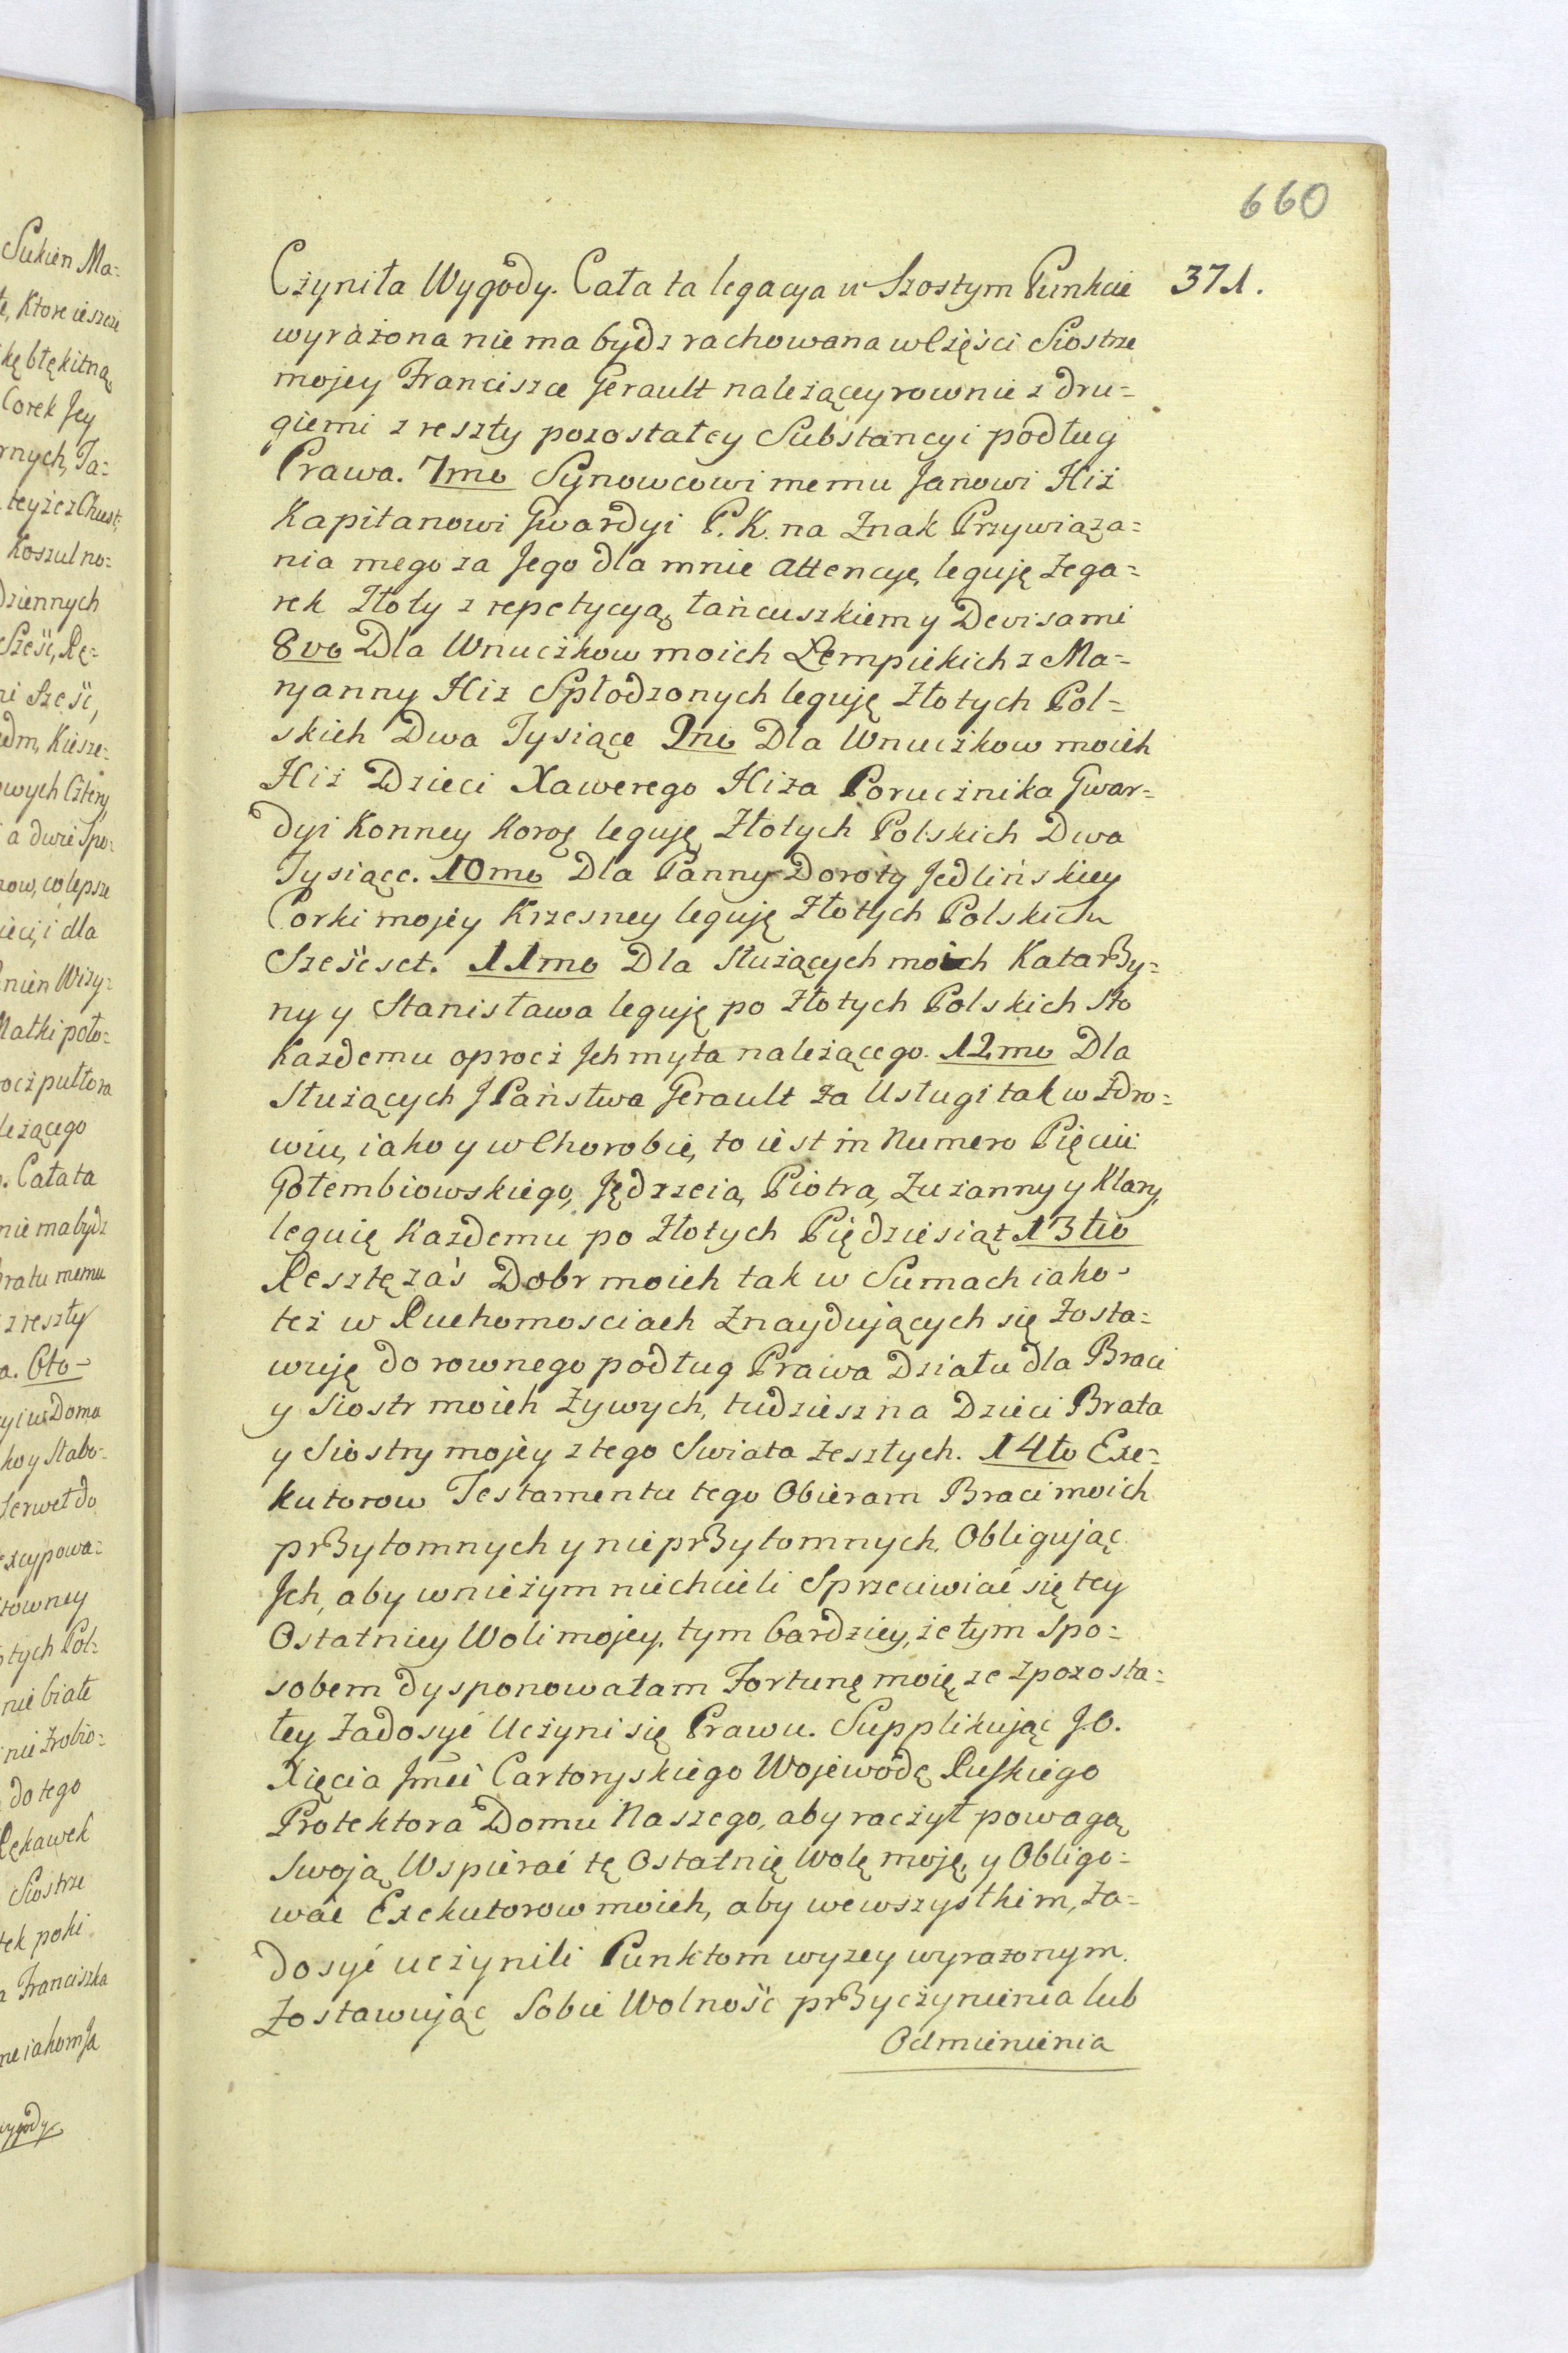 660
371.
Czyniła Wygody. Cała ta legacya w Szostym Punkcie
wyrażona nie ma bydz rachowana w Części Siostrze
mojey Franciszce Gerault należącey rownie z dru=
giemi z reszty pozostałey Substancyi podług
Prawa. 7mo Synowcowi memu Janowi Hiż
Kapitanowi Gwardyi P. K. na Znak Przywiąza=
nia mego za Jego dla mnie attencyę, leguję Zega=
rek Złoty z repetycyą, łańcuszkiem y Devisami
8vo Dla Wnuczkow moich Lempickich z Ma=
ryanny Hiz Spłodzonych leguję Złotych Pol=
skich Dwa Tysiące 9no Dla Wnuczkow moich
Hiż Dzieci Xawerego Hiża Porucznika Gwar=
dyi Konney Koroẏ leguję Złotych Polskich Dwa
Tysiące. 10mo Dla Panny Doroty Jedlińskiey
Corki mojey Krzesney leguję Złotych Polskich
Sześćset. 11mo Dla Służących moich Katarzy=
ny y Stanisława leguję po Złotych Polskich Sto
Każdemu oprocz Jch myta należącego. 12mo Dla
Służących J Państwa Gerault za Usługi tak w Zdro=
wiu, iako y w Chorobie, to iest in Numero Pięciu
Gołembiowskiego, Jędrzeia, Piotra, Zuzanny y Klary,
leguię Każdemu po Złotych Pięдziesiąt 13tio
Resztę zaś Dobr moich tak w Sumach iako-
też w Ruchomosciach Znaydujących się Zosta=
wuję do rownego podług Prawa Działu dla Braci
y Siostr moich Zywych, tudziesz na Dzieci Brata
y Siostry mojey z tego Swiata Zeszłych. 14to Exe=
kutorow Testamentu tego Obieram Braci moich
przytomnych y nieprzytomnych, Obligując
Jch, aby w nieżym niechcieli Sprzeciwiać się tey
Ostatniey Woli mojey, tym bardziey, że tym Spo=
sobem dysponowałam Fortunę moię, że z pozosta=
łey Zadosyć Uczyni się Prawu. Supplikując J.O.
Xięcia Jmći Cartoryskiego Wojewodę Ruskiego
Protektora Domu Naszego, aby raczył powagą
Swoją Wspierać tę Ostatnię Wolę moję, y Obligo=
wać Exekutorow moich, aby we wszystkim, Za=
dosyć uczynili Punktom wyżey wyrażonym.
Zostawując Sobie Wolność przyczynienia lub
Odmienienia
Sukien Ma=
Ktore ieszcze
błękitną
Corek Jey
Koszul no=
dziennych
Sześć, Rę=
Sześć,
Kiesze=
Cztery
a dwie Spo=
co lepsze
i dla
Matki poło=
pułtora
Cała ta
nie ma bydz
memu
z reszty
Oto-
w Domu
Słabo-
Serwet do
Pol=
nie białe
nie Zrobio=
do tego
Rękawek
Siostrze
poki
Franciszka
iakom Ja